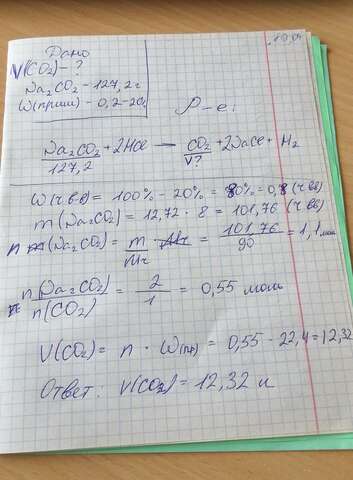 Дано
V(CO₂) - ?
Na₂CO₂ - 127,2 г
W(прим) - 0,2 - 20%
Р-е:
Na₂CO₂ + 2HCl — CO₂ + 2NaCl + H₂
127,2 V?
W(ч в-в) = 100% - 20% = 80% = 0,8 (ч вв)
m(Na₂CO₂) = 12,72 · 8 = 101,76 (ч вв)
n (Na₂CO₂) = m/Mr = 101,76/90 = 1,1 моль
n(Na₂CO₂)/n(CO₂) = 2/1 = 0,55 моль
V(CO₂) = n · W(пр) = 0,55 - 22,4 = 12,32
Ответ: V(CO₂) = 12,32 л